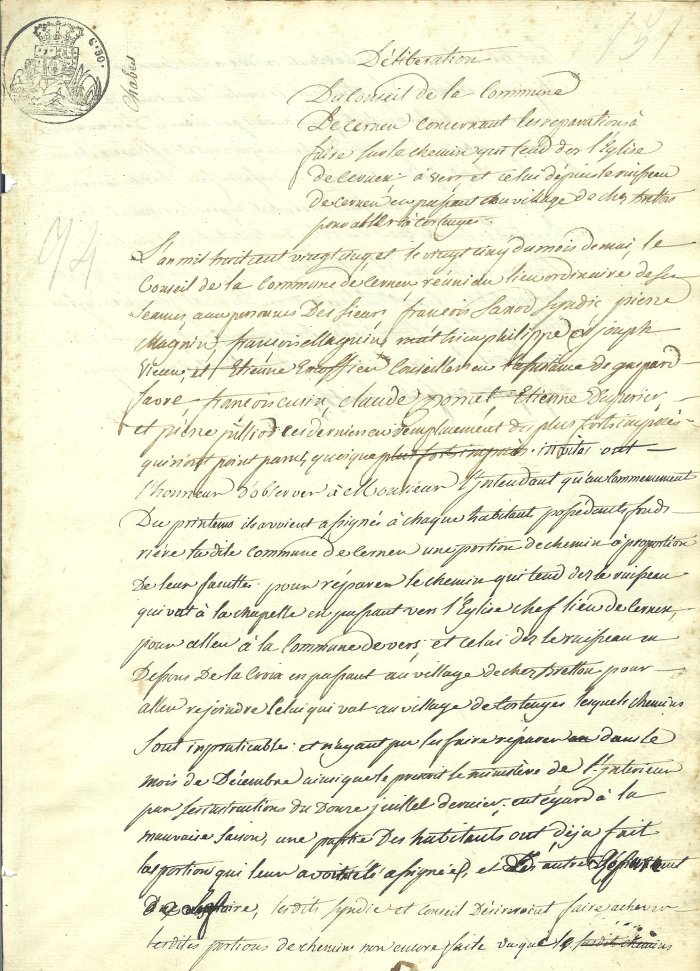 151
6.30.
Chabus
Déliberation
Du Conseil de la Commune
De cernex concernant les reparations à
faire sur le chemin qui tend dez l'Eglise
de cernex à vers et celui dépuis le ruisseau
de cernex en passant au village de chez Bretton
pour aller à cortenges.
94
L'an mil huit cent vingt cinq et le vingt cinq du mois de mai, le
Conseil de la Commune de Cernex réuni au lieu ordinaire de ses
séances aux personnes Des sieurs françois Syndic pierre
Magnin, françois Magnin, mathieu philippe joseph
et Etienne Conseillers en de gaspard
favre, françois cusin, claude Etienne Duperier
et pierre julliod ces derniers en remplacement des plus forts imposés
qui n'ont point parus, quoique plus forts imposés invités ont
l'honneur d'observer à Monsieur l'Intendant qu'au commencement
Du printems ils avoient assignés à chaque habitant possédants fonds
riére la dite commune de cernex une portion de chemin à proportion
De leur facultés pour réparer le chemin qui tend dez le ruisseau
qui vat à la chapelle en passant vers l'Eglise chef lieu de Cernex,
pour aller à la Commune de vers, et celui dez le ruisseau en
Dessous De la Croix en passant au village de chez Bretton pour
aller rejoindre Celui qui vat au village de cortenges lesquels chemins
Sont inpraticables et n'ayant pu les faire réparer dans le
mois de Décembre ainsi que le prescrit le ministère de l'intérieur
par ses instructions du Douze juillet dernier, eut égard à la
mauvaise saison, une partie Des habitants ont déja fait
la portion qui leur avoit étés assignée, et Les autres Refusent
De le faire, lesdits syndic et conseil Désireroient faire achever
lesdites portions de chemin non encore faite vu que lesdits chemins